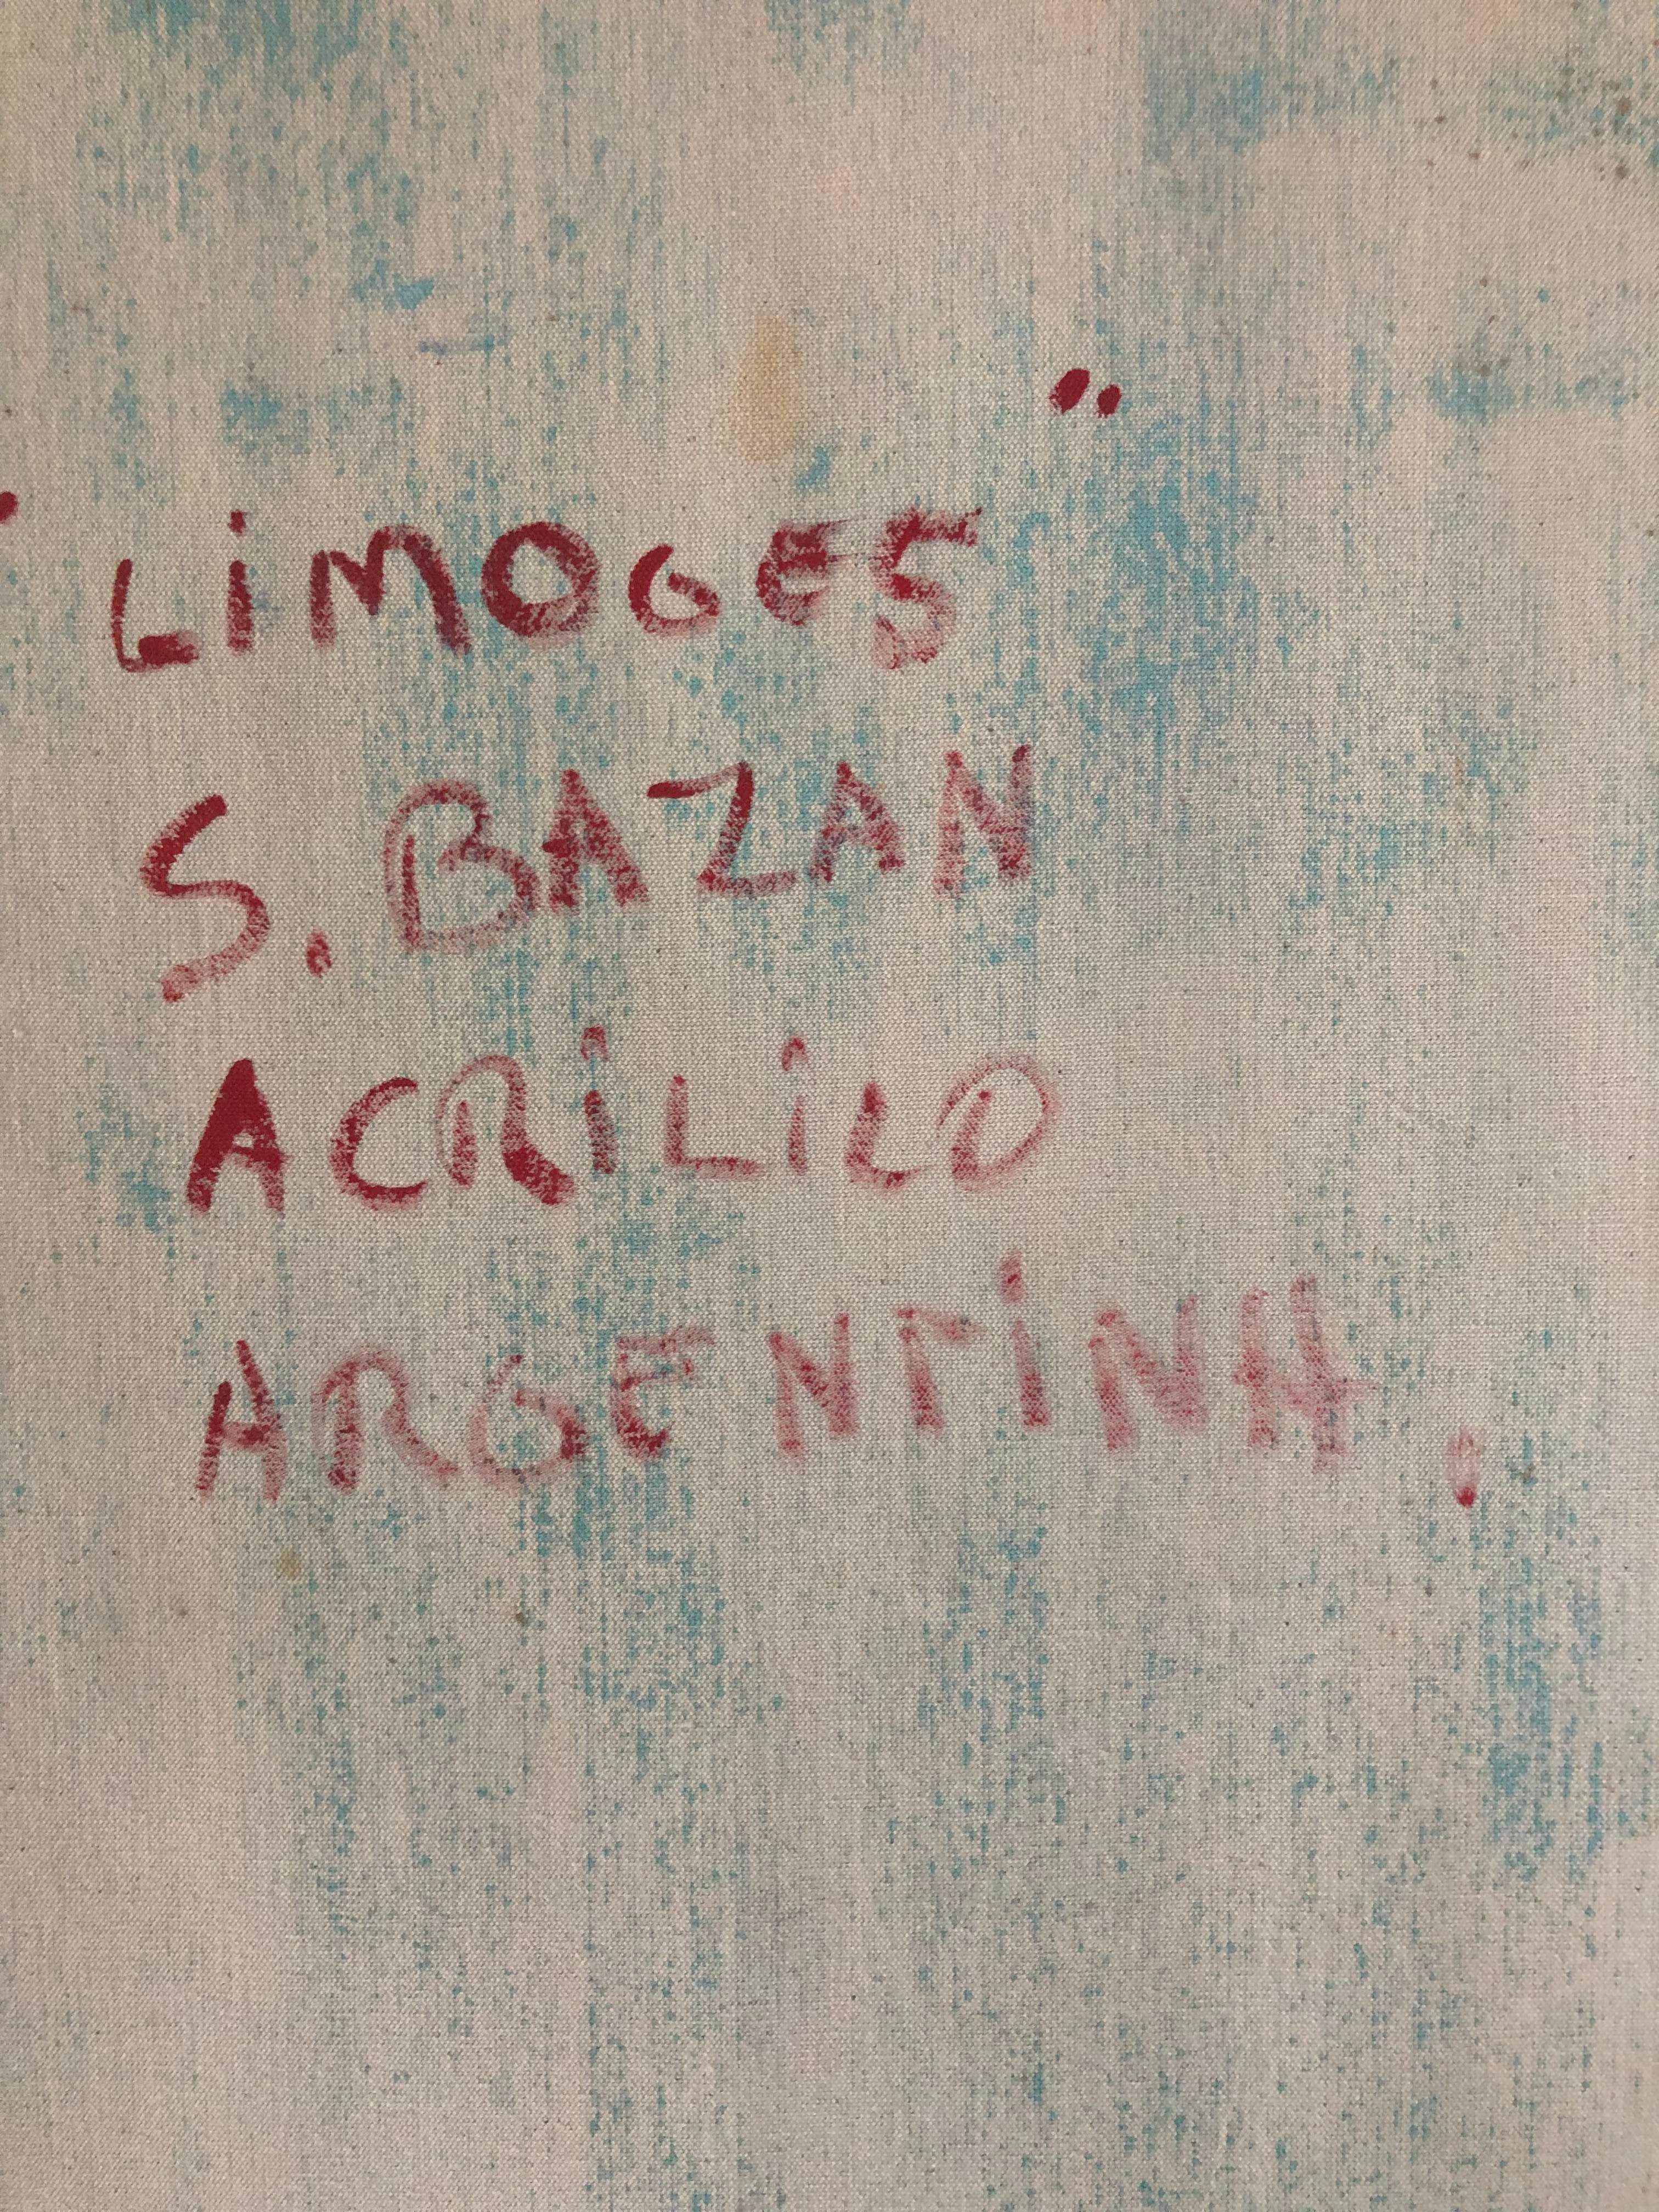 "LiMOGES"
S. BAZAN
ACRiLiCO
ARGENTiNA.